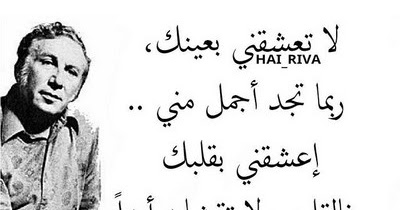 لا تعشقني بعينك،
HAI_RIVA
ربما تجد أجمل مني ..
إعشقني بقلبك
لا أبداً